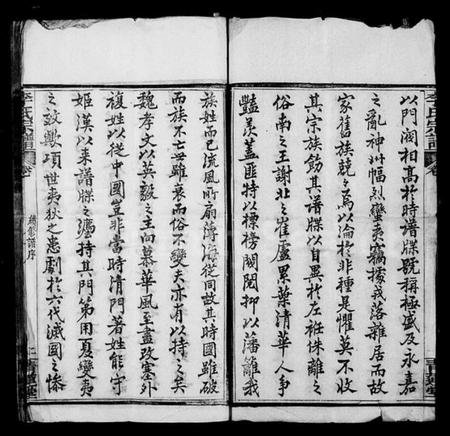 以門閥相高於時譜牒號稱極盛及永嘉
之亂神州幅烈蠻夷竊據戎落雜居而故
家舊族兢兢焉以淪於非種是懼莫不收
其宗族飭其譜牒以自異於左袵侏離之
俗南之王謝北之崔盧累葉清華人爭
豔羡蓋匪特以標榜閥閱抑以藩離我
族姓而已流風所扇薄海從同故其時國雖破
而族不亡世雖衰而俗不變夫亦有以持之矣
魏孝文以英毅之主向慕華風至盡改塞外
複姓以從中國豈非當時清門著姓能守
姬漢以來譜牒之灋持其門第用夏變夷
之致歟項世夷狄之患劇於六代滅國之慘
李氏宗譜
卷
李氏宗譜
卷
續彰譜序
二
青蓮堂
三
青蓮堂